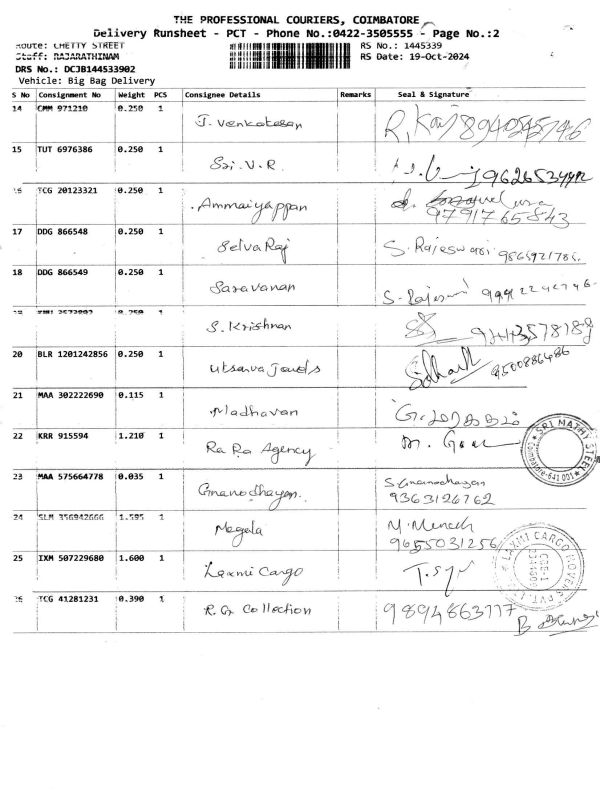 THE PROFESSIONAL COURIERS, COIMBATORE
Delivery Runsheet - PCT - Phone No.:0422-3505555 - Page No.:2
Route: CHETTY STREET RS No.: 1445339
Staff: RAJARATHINAM RS Date: 19-Oct-2024
DRS No.: DCJB144533902
Vehicle: Big Bag Delivery
S No Consignment No Weight PCS Consignee Details Remarks Seal & Signature
14 CMM 971210 0.250 1 J. Venkatesan
15 TUT 6976386 0.250 1 Sri. V. R
16 TCG 20123321 0.250 1 Ammaiyappan 9791765843
17 DDG 866548 0.250 1 Selva Raj S. Rajeswari
18 DDG 866549 0.250 1 Saravanan
0.250 1 S. Krishnan
20 BLR 1201242856 0.250 1 9500886486
21 MAA 302222690 0.115 1 Madhavan
22 KRR 915594 1.210 1 Ra Ra Agency
SRI MATHY STEEL
23 MAA 575664778 0.035 1 Gnanodhayan S. Gnanodhayan
9363126762
24 SLM 356942666 1.595 1 Megala
9655031256
25 IXM 507229680 1.600 1 Laxmi Cargo
LAXMI CARGO MOVERS PVT.
26 TCG 41281231 0.390 1 R. G Collection